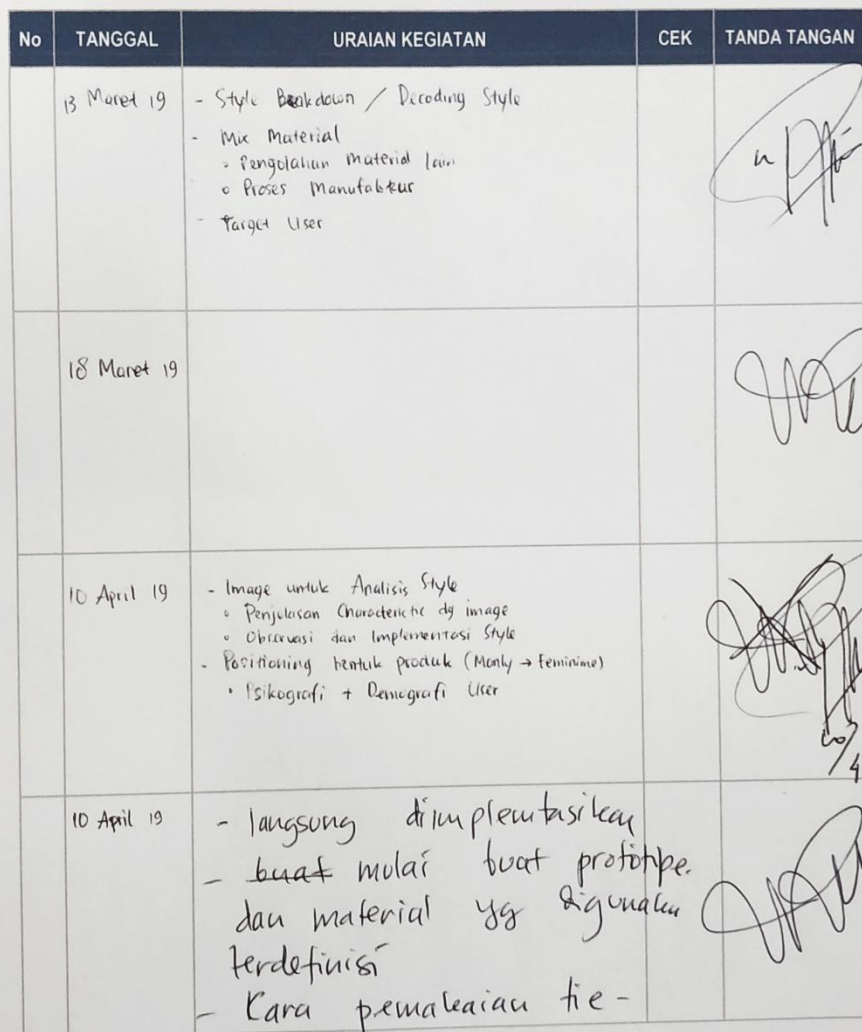 No TANGGAL URAIAN KEGIATAN CEK TANDA TANGAN
13 Maret 19
- Style Breakdown / Decoding Style
- Mix Material
◦ Pengolahan material lain
◦ Proses Manufaktur
- Target User
18 Maret 19
10 April 19
- Image untuk Analisis Style
◦ Penjelasan Characteristic dg image
◦ Observasi dan Implementasi Style
- Positioning bentuk produk (Manly → Feminime)
• Psikografi + Demografi User
10 April 19
- langsung diimplemtasikan
- buat mulai buat prototipe.
dan material yg digunakan
terdefinisi
- Cara pemakaian tie-